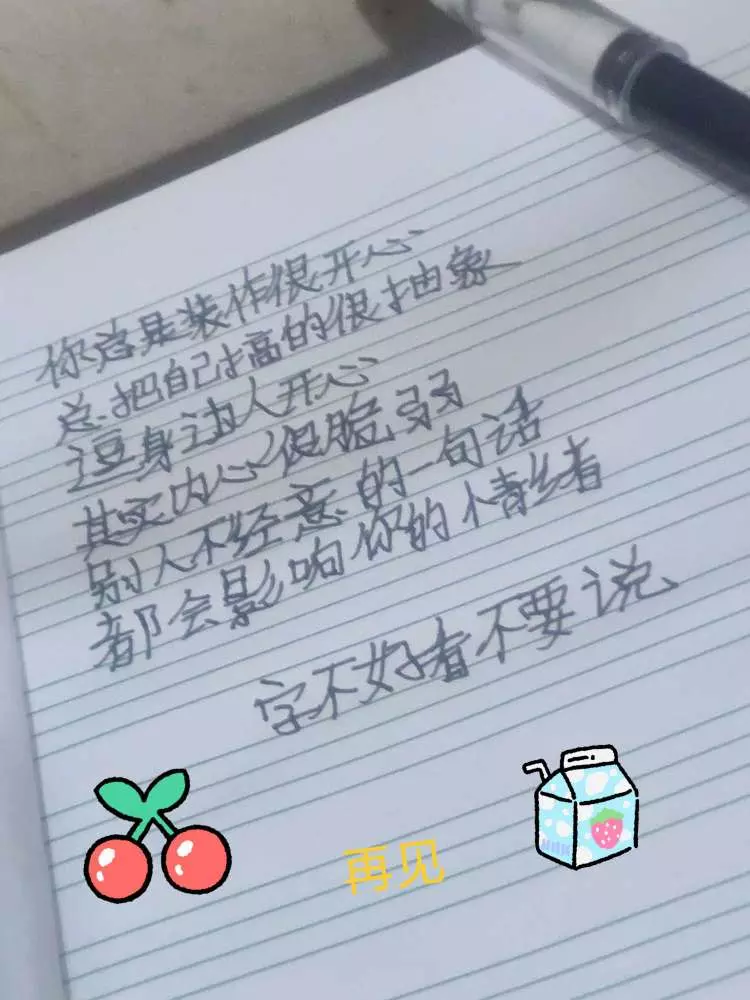 你总是装作很开心
总把自己搞的很抽象
逗身边人开心
其实内心很脆弱
别人不经意的一句话
都会影响你的情绪
字不好看不要说
再见